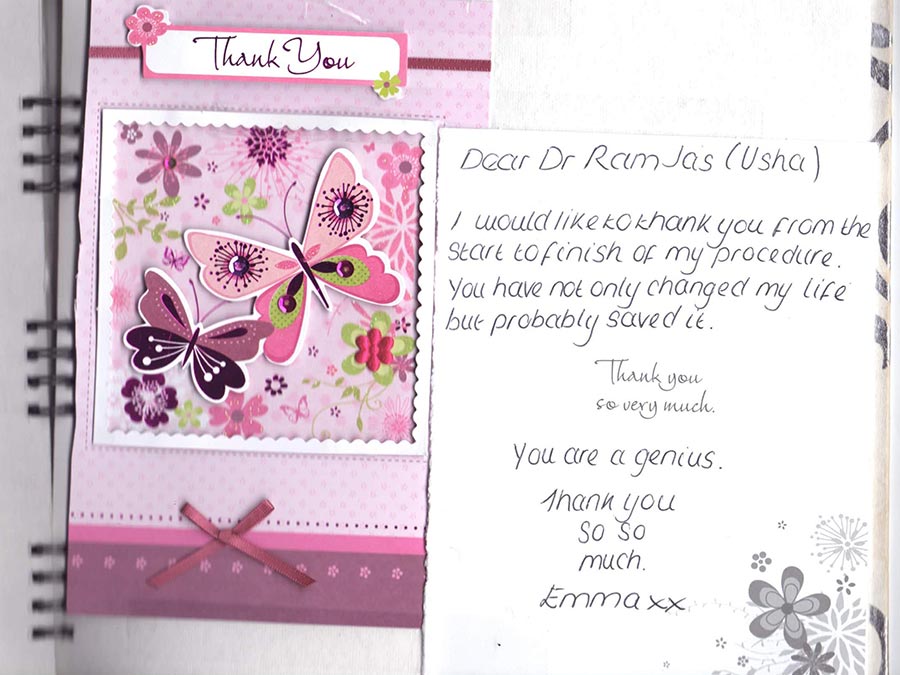 Thank You
Dear Dr Ram Jas (Usha)
I would like to thank you from the
start to finish of my procedure.
You have not only changed my life
but probably saved it.
Thank you
so very much.
You are a genius.
Thank you
so so
much.
Emma xx